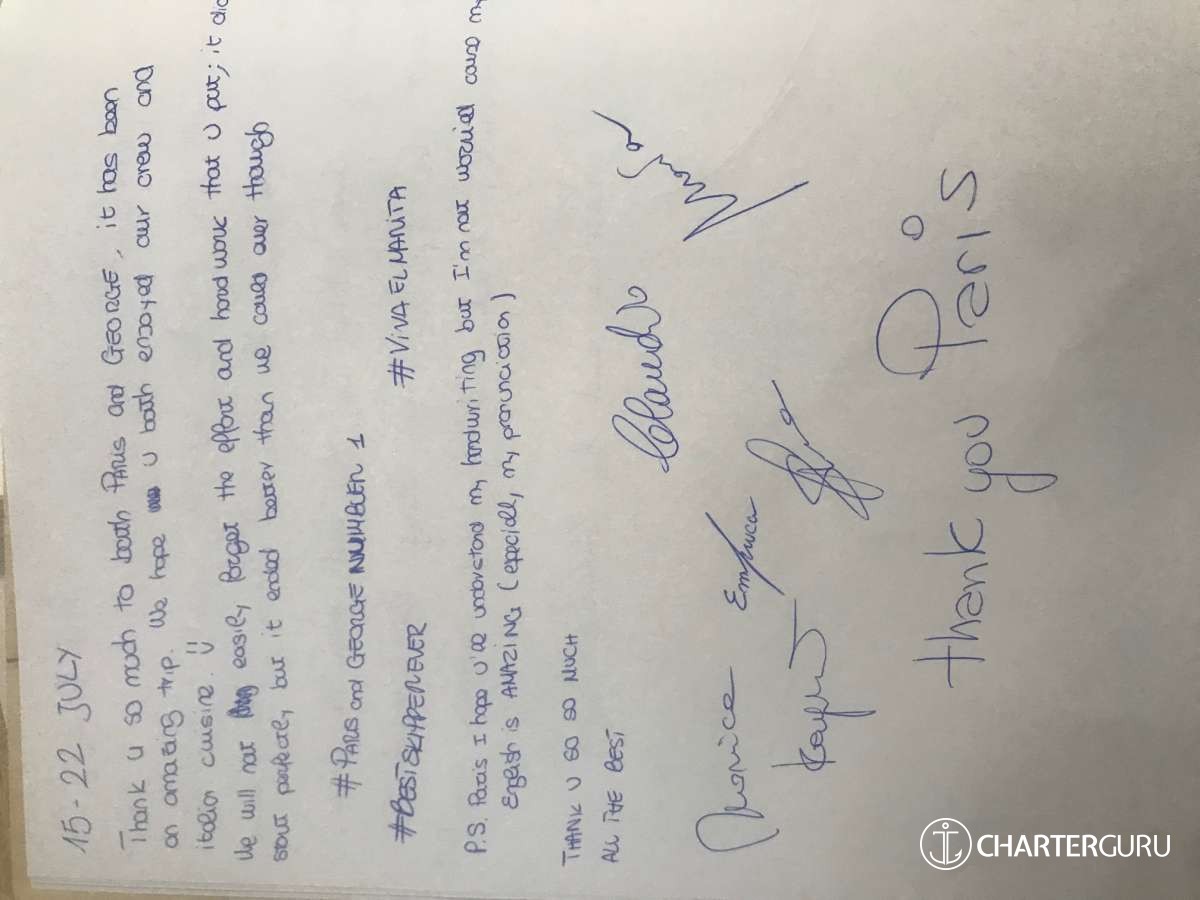 15-22 JULY
Thank u so much to both PARIS and GEORGE, it has been
an amazing trip. We hope u both enjoyed our crew and
italian cuisine. Ü
We will not easily forget the effort and hard work that u put; it did
start perfectly, but it ended better than we could ever though
#PARIS and GEORGE NUMBER 1
#BESTSKIPPEREVER #VIVA EL MANITA
P.S. Paris I hope u'll understand my handwriting but I'm not worried cause my
English is AMAZING (especially my pronunciation)
THANK U SO SO MUCH
ALL THE BEST
Claudio
Monica
thank you Paris
CHARTERGURU